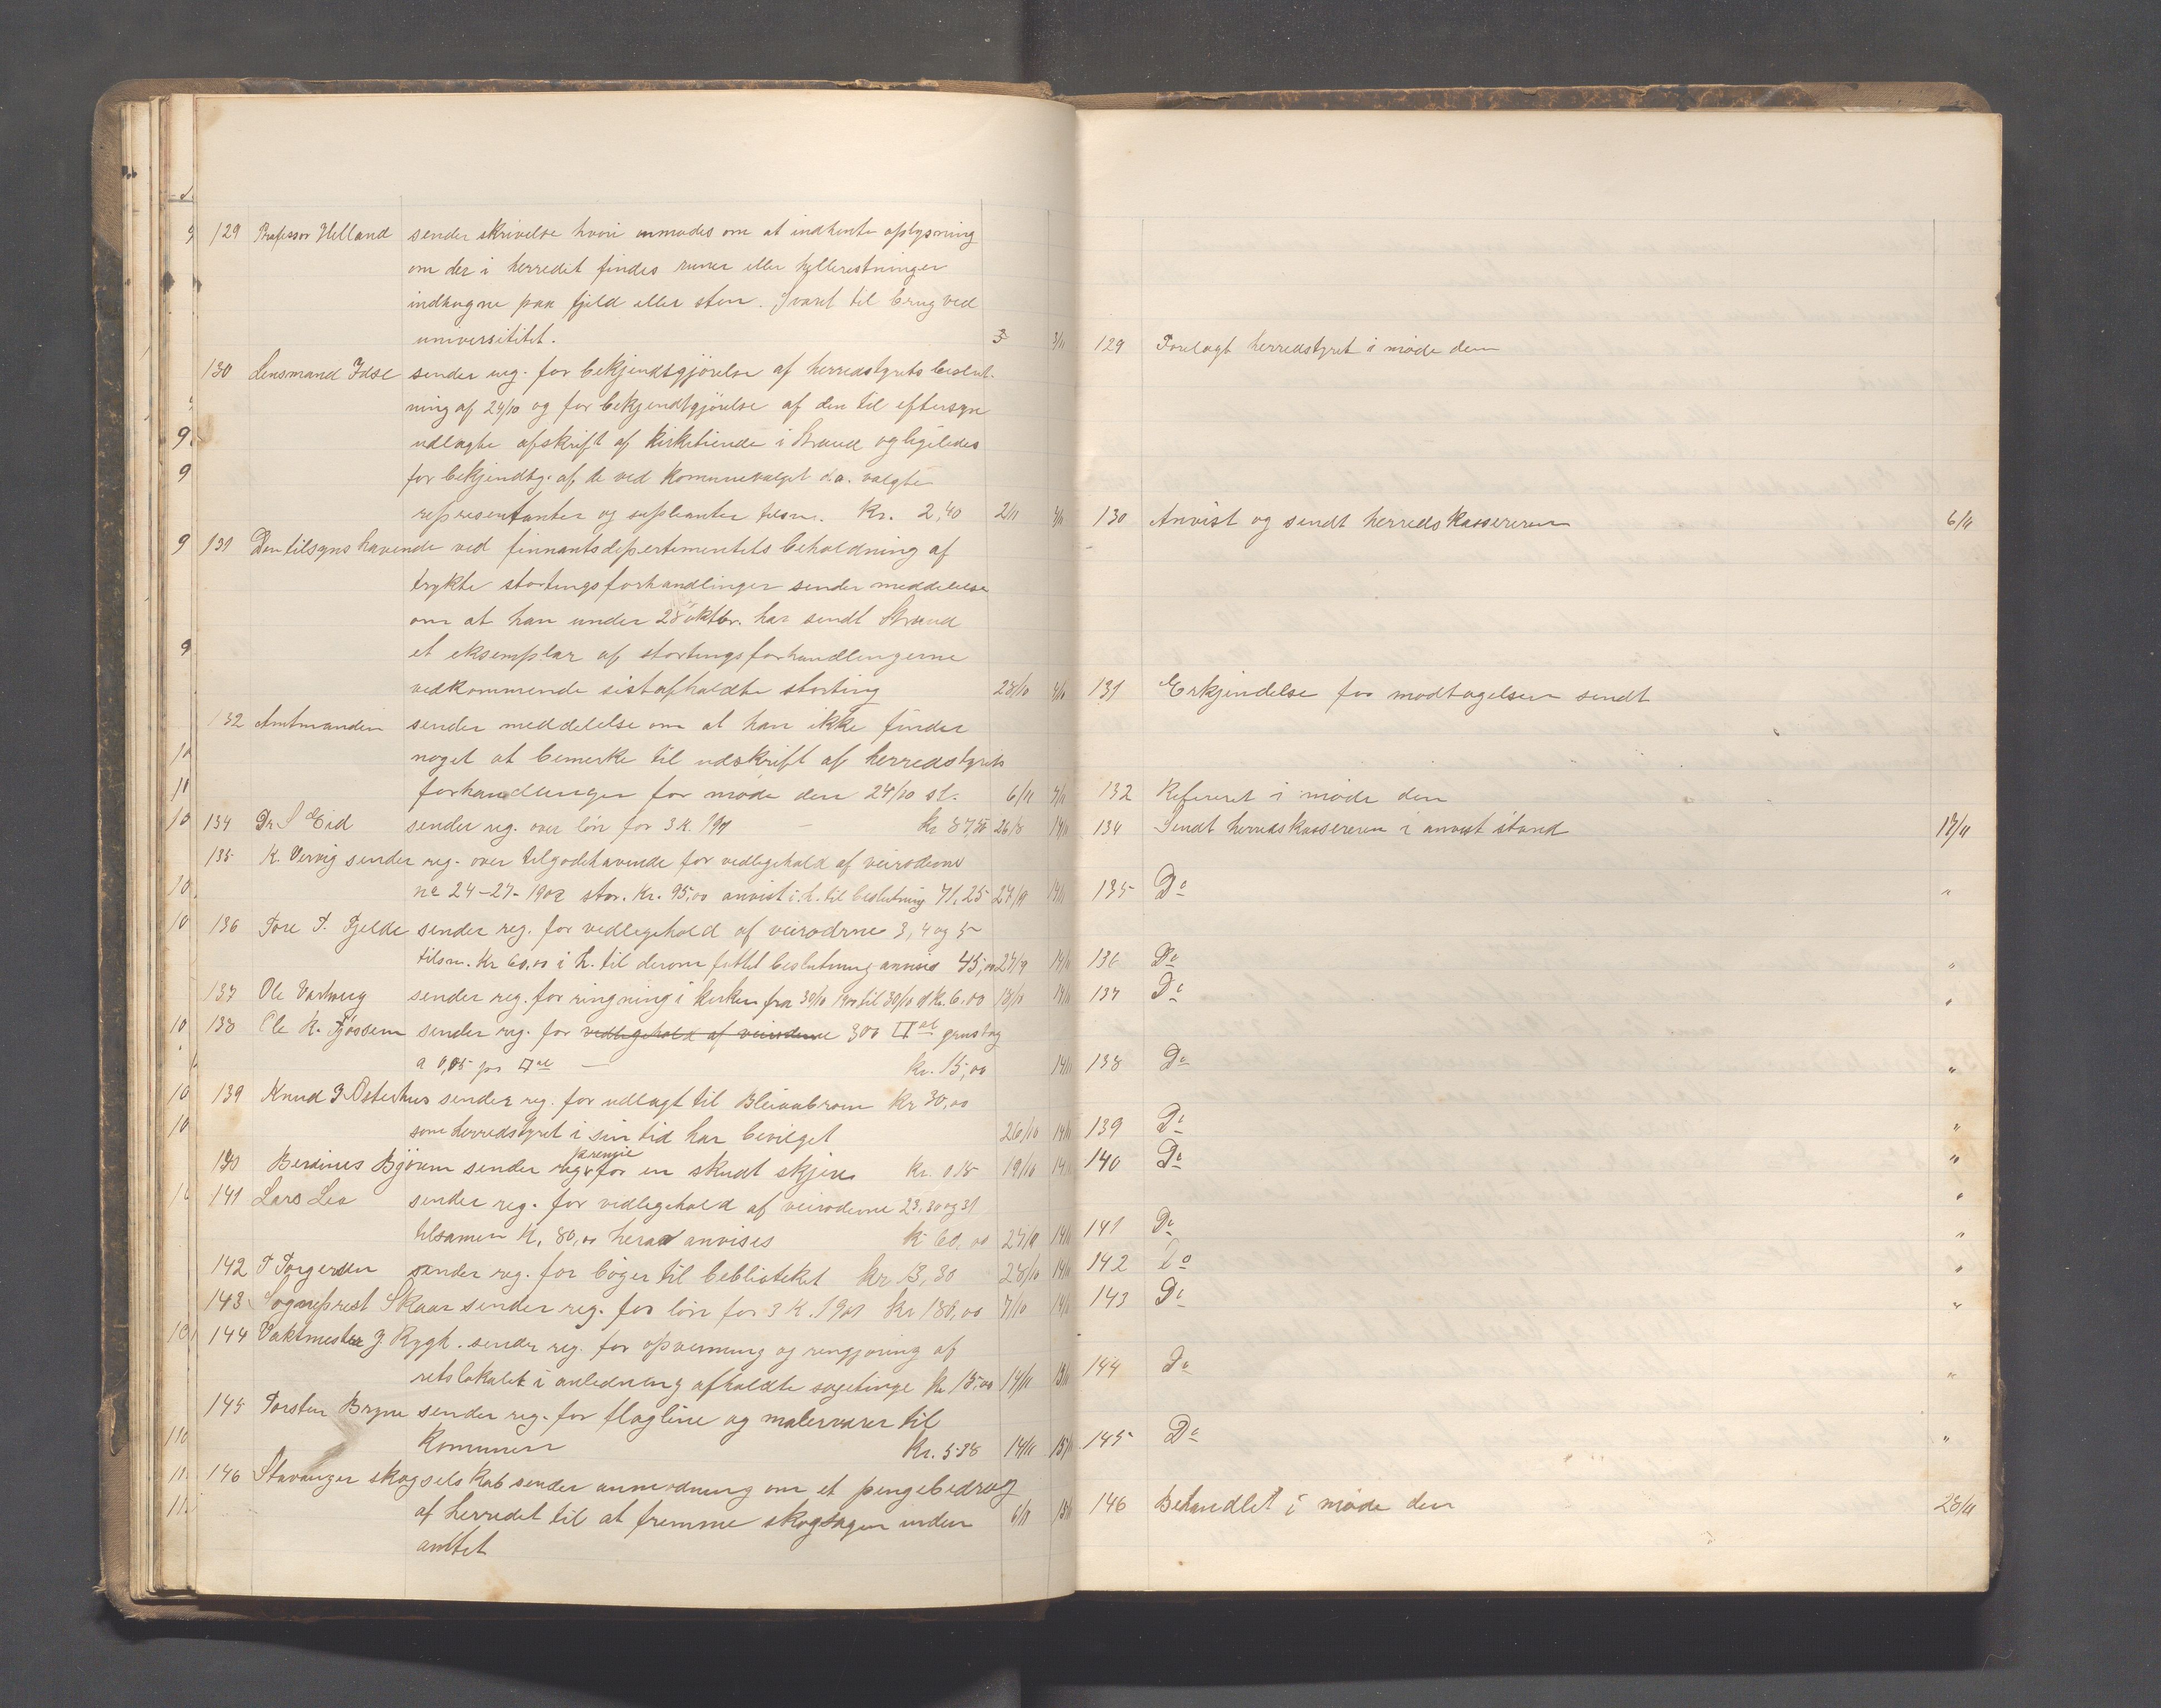 129 Professor Helland sender skrivelse hvori anmodes om at indhente oplysning
om der i herredet findes runer eller hellerestninger
indhugne paa fjeld eller sten. Svaret til brug ved
universitetet. 3/11
130 Lensmand Idse sender reg. for bekjendtgjörelse af herredstyrets beslut-
ning af 24/10 og for bekjendtgjörelse af den til eftersyn
udlagte afskrift af Kirketiende i Strand og ligeledes
for bekjendtg. af de ved Kommunevalget d.a. valgte
representanter og supleanter tilsm. Kr. 2,40 2/11
131 Den tilsyns havende ved finnantsdepertementets beholdning af
trykte stortingsforhandlinger sender meddelelse
om at han under 28 oktbr. har sendt Strand
et eksemplar af stortingsforhandlingerne
vedkommende sistafholdte storting 28/10
132 Amtmanden sender meddelelse om at han ikke finder
noget at bemerke til udskrift af herredstyrets
forhandlinger for møde den 24/10 sl. 6/11
134 Dr. S Eid sender reg. over lön for 3 K. 1901 — Kr 87,50 26/8 14/11
135 K. Vervig sender reg. over tilgodehavende for vedligehold af veiroderne
no 24-27- 1902 stor. Kr. 95,00 anvist i. h. til beslutning 71,25 27/9 14/11
136 Tore T. Fjelde sender reg. for vedligehold af veiroderne 3, 4 og 5
tilsm. Kr 60,00 i h. til derom fattet beslutning anvises 45,00 27/9 14/11
137 Ole Vastveig sender reg. for ringning i kirken fra 30/10 1900 til 30/10 d Kr. 6,00 18/10 14/11
138 Ole K. Fjössem sender reg. for vedligehold af veiroderne 300 □al grustag
a 0,05 pr □al — Kr. 15,00 14/11
139 Knud J Østerhus sender reg. for udlagt til Bleiaabroen Kr 30,00
som herredstyret i sin tid har bevilget 26/10 14/11
140 Berdines Bjørnn sender reg. for premie en skudt skjær Kr. 0.15 19/10 14/11
141 Lars Lea sender reg. for vedligehold af veiroderne 23, 30 og 31
tilsamen K. 80,00 heraf anvises K 60,00 27/9 14/11
142 T Torgersen sender reg. for böger til beblioteket Kr 13,30 28/10 14/11
143 Sogneprest Skaar sender reg. for lön for 3 K. 1901 Kr 180,00 7/10 14/11
144 Vaktmester J Rygh. sender reg. for opvarmning og rengjöring af
retslokalet i anledning afholdte sagetinge Kr 15,00 14/11 15/11
145 Torsten Bryne sender reg. for flagline og malervarer til
Kommunen Kr. 5.38 14/11 15/11
146 Stavanger skogselskab sender anmodning om et pengebedrag
af herredet til at fremme skogsagen inden 6/11 15/11
amtet
129 Forelagt herredstyret i möde den
130 Anvist og sendt herredskassereren 6/11
131 Erkjendelse for modtagelsen sendt
132 Refereret i möde den
134 Sendt herredskassereren i anvist stand 17/11
135 Do "
136 Do "
137 Do "
138 Do "
139 Do "
140 Do "
141 Do "
142 Do "
143 Do "
144 Do "
145 Do "
146 Behandlet i möde den 28/11